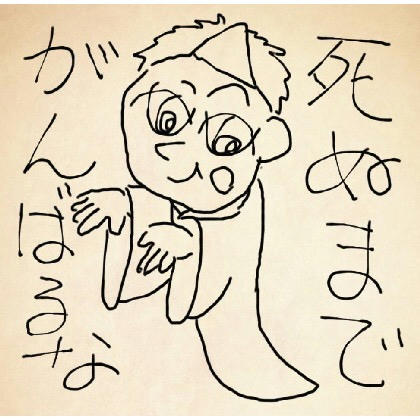 死ぬまで
がんばるな